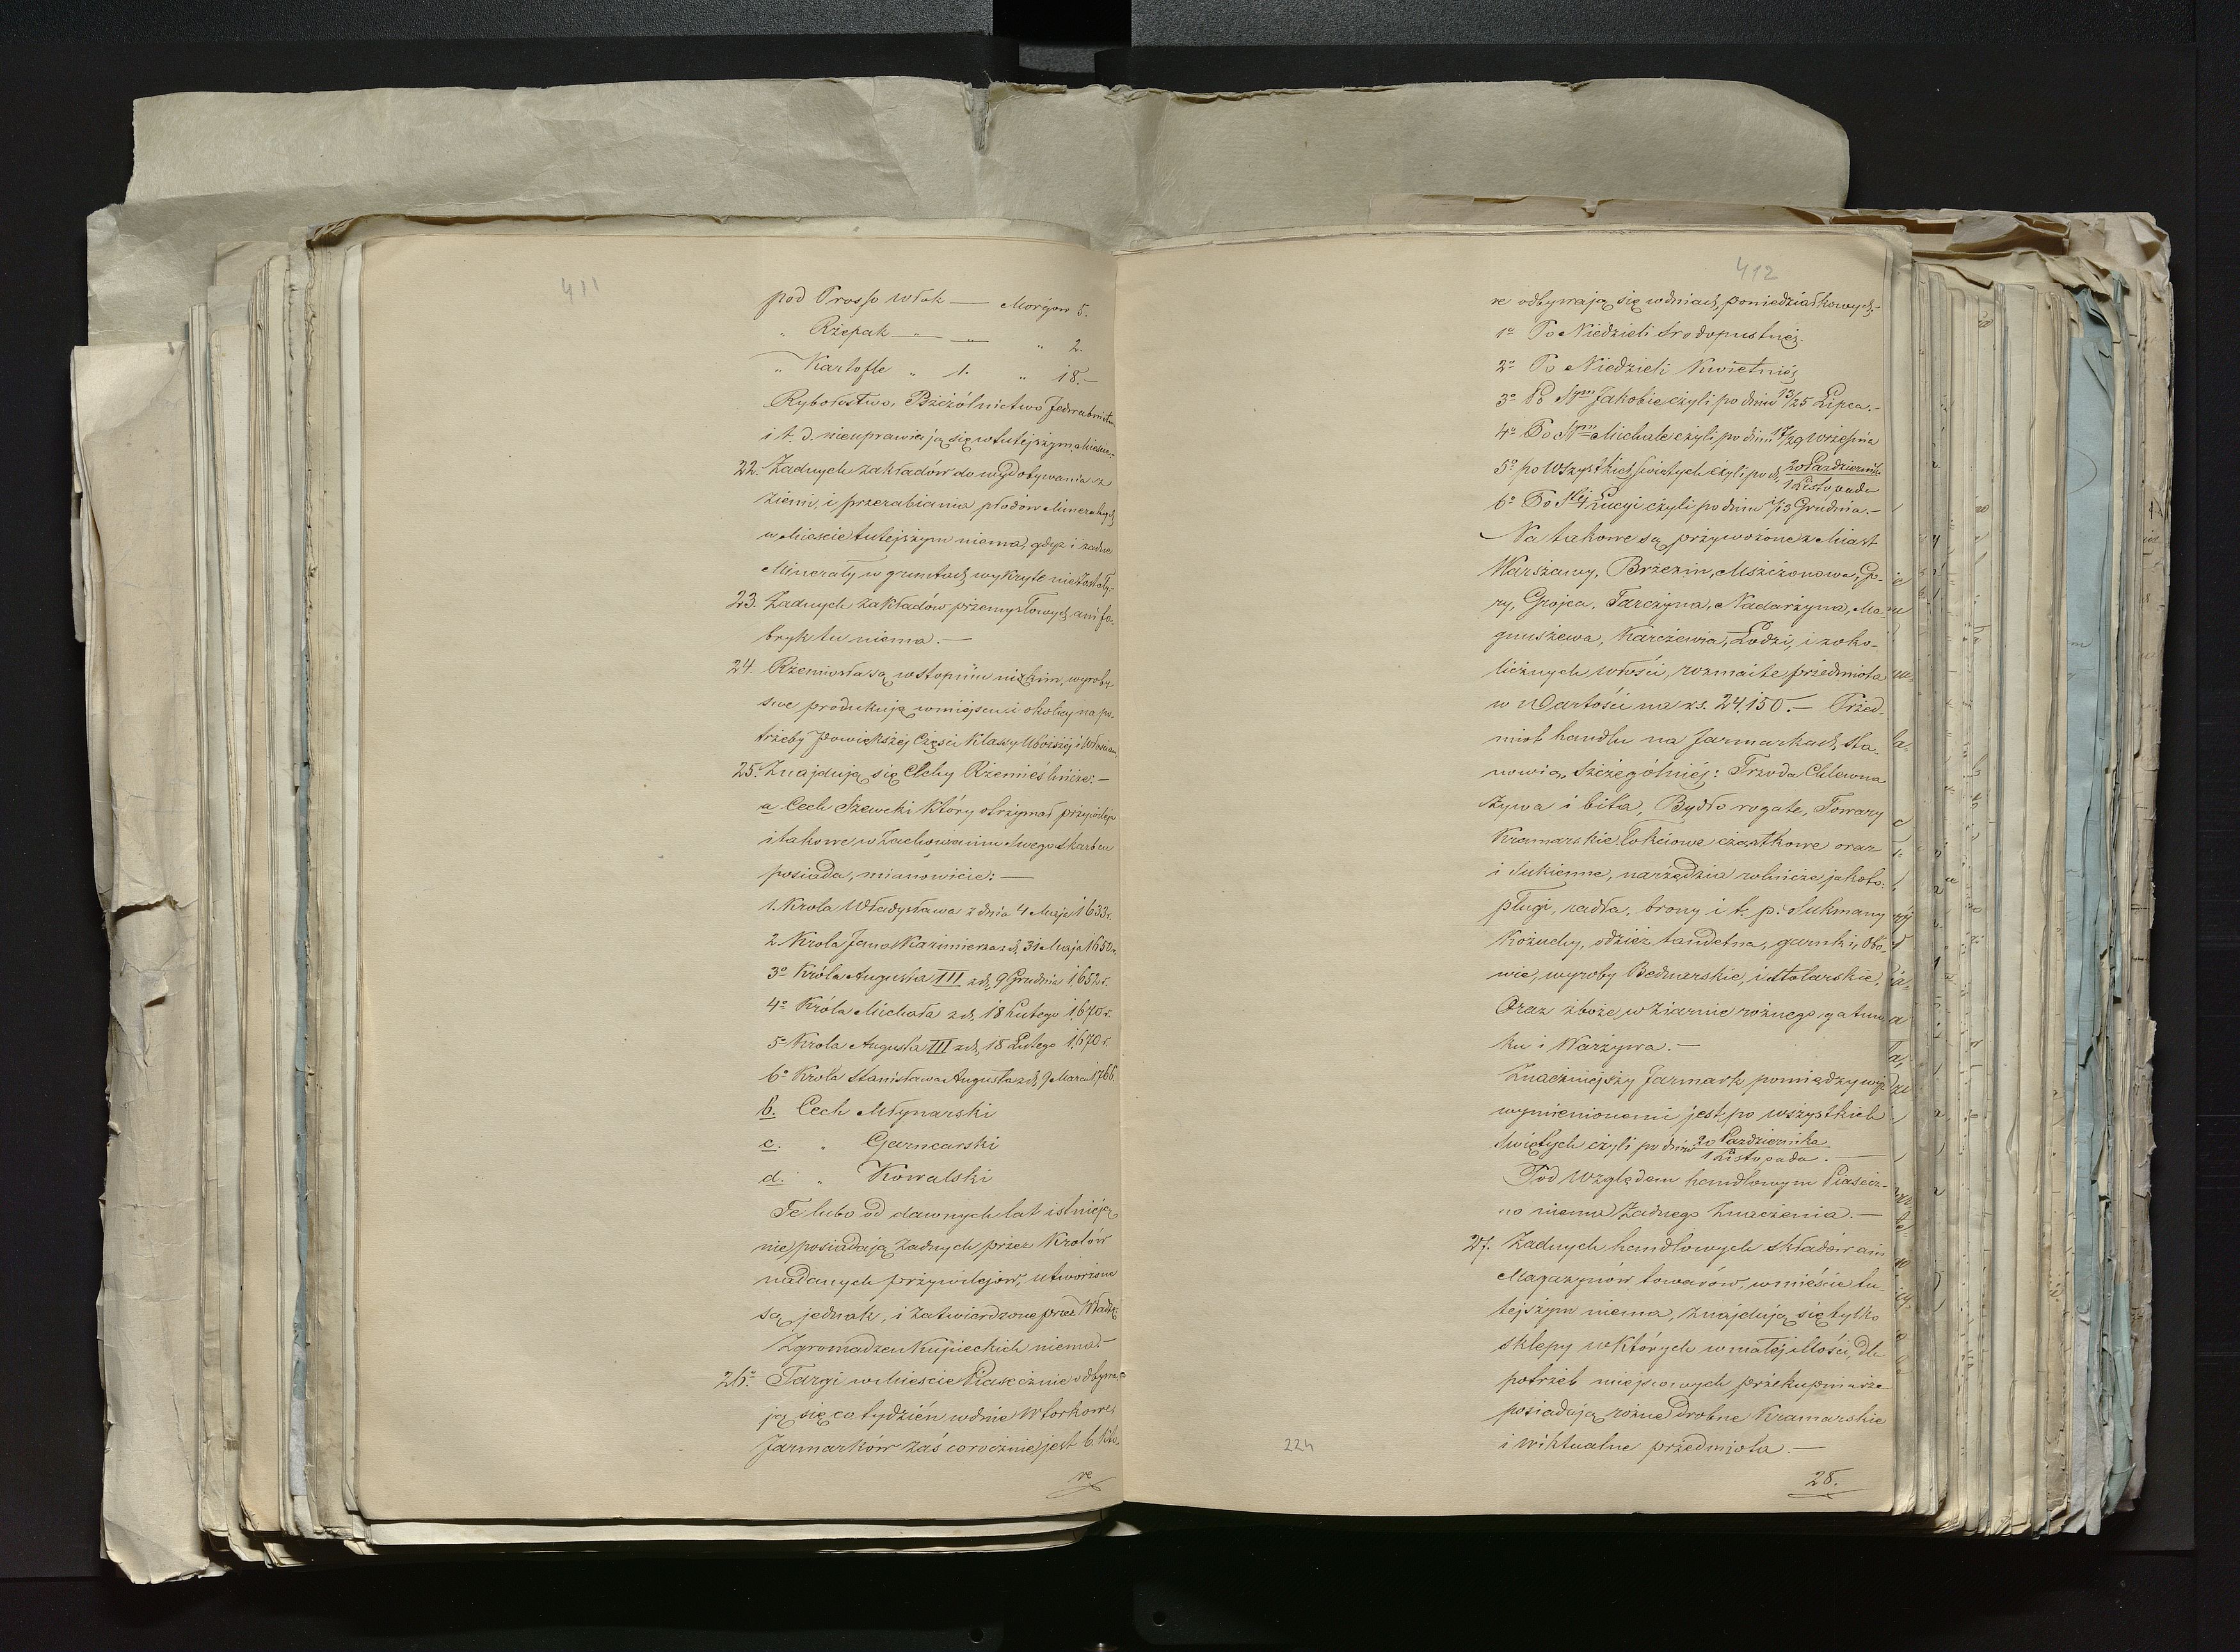 411
pod Prosso Włok — Morgów 5.
" Rzepak " — " 2.
" Kartofle " 1. " 18.—
Rybołówstwo, Pszczólnictwo Jedwabnictwo
i t. d. nieuprawiają się w tutejszym Mieście.
22. Żadnych zakładów do wydobywania z
ziemi, i przerabiania płodów Mineralnych
w Mieście tutejszym niema, gdyż i żadne
Minerały w gruntach wykryte nie zostały.
23. Żadnych zakładów przemysłowych ani fa-
bryk tu niema.—
24. Rzemiosła są w stopniu nizkim, wyroby
swe produkują w miejscu i okolicy na po-
trzeby powiększej Części Klassy Uboższej i Włościan
25. Znajdują się Cechy Rzemieślnicze:—
a Cech Szewcki który otrzymał przywileje
i takowe w Zachowaniu swego skarbcu
posiada, mianowicie:—
1. Krola Władysława z dnia 4 Maja 1633 r.
2. Krola Jana Kazimierza z d. 31 Maja 1650 r.
3o Króla Augusta III z d. 9 Grudnia 1652 r.
4o Króla Michała z d. 18 Lutego 1670 r.
5o Krola Augusta III z d. 18 Lutego 1670 r.
6o Krola Stanisława Augusta z d. 9 Marca 1766.
b. Cech Młynarski
c. " Garncarski
d. " Kowalski
Te lubo od dawnych lat istnieją
nie posiadają żadnych przez Krolów
nadanych przywilejów, utworzone
są jednak, i zatwierdzone przez Władzę
Zgromadzeń Kupieckich niema.—
26o. Targi w Mieście Piasecznie odbywa-
ją się co tydzień w dnie Wtorkowe,
Jarmarków zaś corocznie jest 6. któ-
re
412
re odbywają się w dniach poniedziałkowych:
1o Po Niedzieli Srodopustnéj.
2o Po Niedzieli Kwietniéj
3o Po Stym Jakobie czyli po dniu 13/25 Lipca.—
4o Po Stym Michale czyli po dniu 17/29 Września
5o po Wszystkich Swiętych czyli po d. 20 Października
1 Listopada
6o Po Stej Lucyi czyli po dniu 1/13 Grudnia.—
Na takowe są przywożone z Miast
Warszawy, Brzezin, Mszczonowa, Gó-
ry, Grojca, Tarczyna, Nadarzyna, Ma-
gnuszewa, Karczewia, Łodzi, i z oko-
licznych włości, rozmaite przedmiota
w Wartości na rs. 24,150.— Przed-
miot handlu na Jarmarkach sta-
nowią, szczególniéj: Trzoda Chlewna
żywa i bita, Bydło rogate, Towary
Kramarskie, łokciowe cząstkowe oraz
i Sukienne, narzędzia rolnicze jakoto:
pługi, radła, brony i t. p. Sukmany
Kożuchy, odzież tandetna, garnki, Obó-
wie, wyroby Bednarskie, i Stolarskie,
Oraz zboże w ziarnie rożnego gatun-
ku i Warzywa.—
Znaczniejszy Jarmark pomiędzy wyż
wymienionemi jest po wszystkich
Swiętych czyli po dniu 20 Października
1 Listopada.—
Pod Względem handlowym Piasecz-
no niema żadnego znaczenia.—
27. Żadnych handlowych składów ani
Magazynów towarów, w mieście tu-
tejszym niema, znajdują się tylko
sklepy w których w małéj ilości, dla
potrzeb miejscowych przekupnia
posiadają rożne drobne Kramarskie
i wiktualne przedmiota.—
224
28.